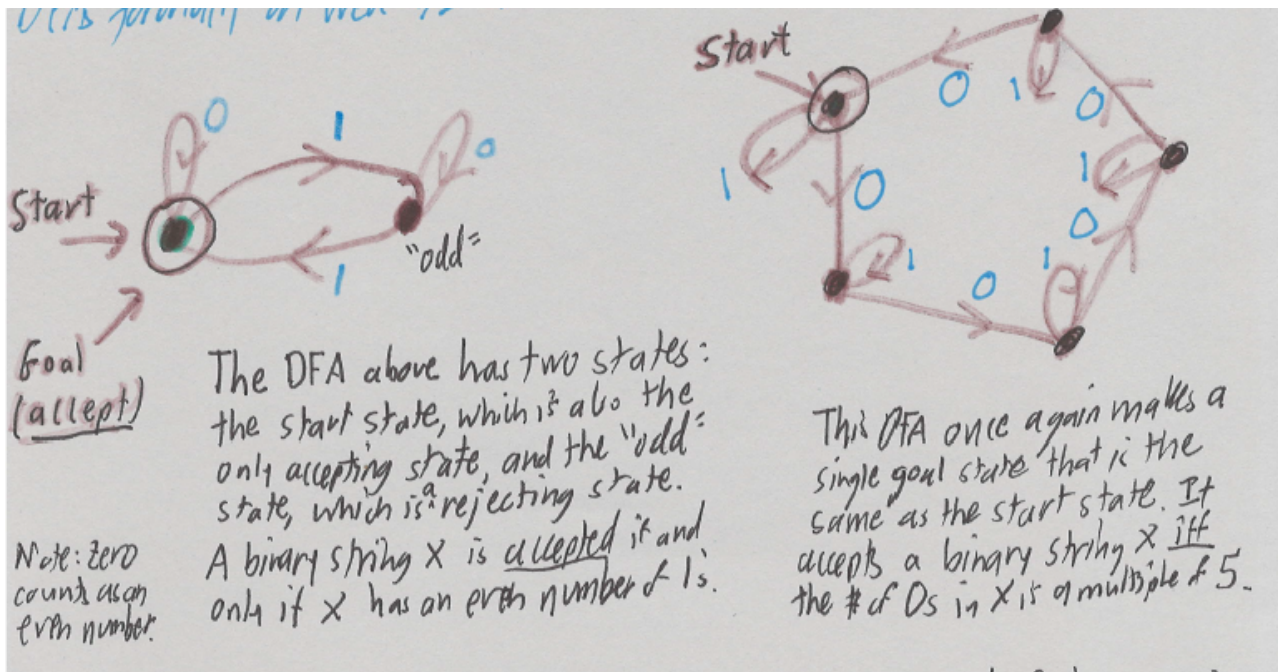 formally on Wed
Start
0
1
0
Start
1
"odd"
Goal
(accept)
The DFA above has two states:
the start state, which is also the
only accepting state, and the "odd"
state, which is a rejecting state.
A binary string X is accepted if and
only if X has an even number of 1s.
Note: Zero
counts as an
even number.
0
1
0
1
1
0
0
1
0
1
This DFA once again makes a
single goal state that is the
same as the start state. It
accepts a binary string X iff
the # of 0s in X is a multiple of 5.